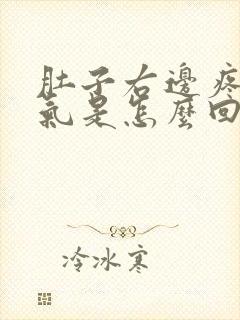 肚子右邊疼
氣是怎麼回
冷冰寒